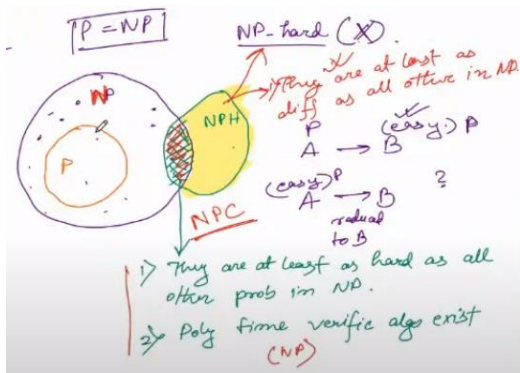 P = NP
NP-hard (X).
1) They are at least as
diff as all other in NP.
NP
P
NPH
NPC
P (easy.) P
A → B
(easy) P
A → B ?
reduced
to B
1) They are at least as hard as all
other prob in NP.
2) Poly time verific algo exist
(NP)